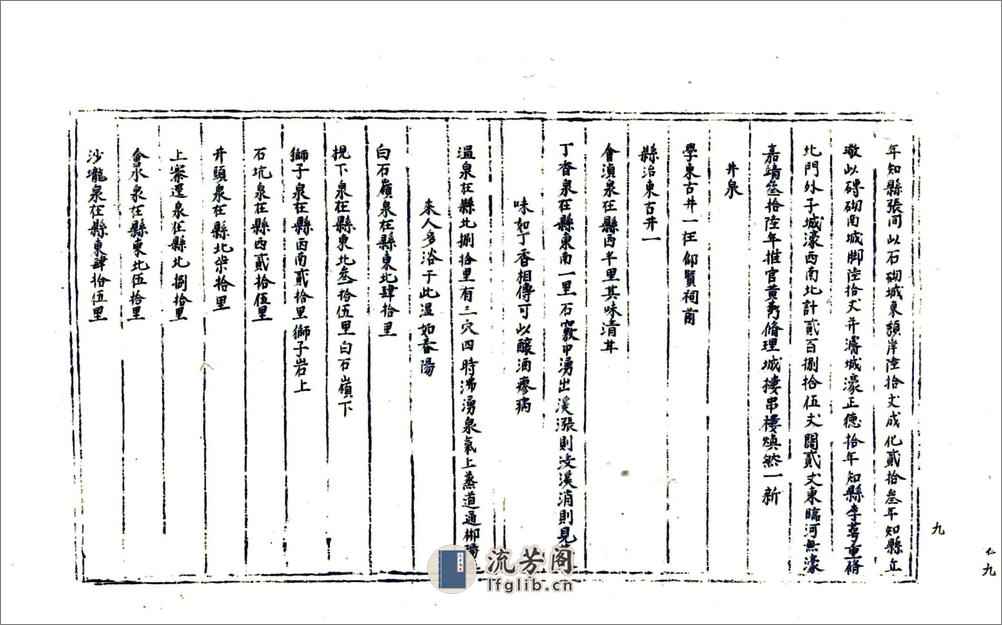 年知縣張問以石砌城東頹岸陸拾丈成化貳拾叁年知縣
敬以磚砌南城脚陸拾丈并濬城濠正德拾年知縣李萼重脩
北門外子城濠西南北計貳百捌拾伍丈闊貳丈東臨河無濠
嘉靖叁拾陸年推官黃脩理城樓串樓煥然一新
井泉
學東古井一在鄉賢祠前
縣治東古井一
會湞泉在縣西半里其味清甘
丁香泉在縣東南一里石竅中湧出溪漲則沒溪消則見
味如丁香相傳可以釀酒瘳病
溫泉在縣北捌拾里有三穴四時沸湧泉氣上蒸道通郴
來人多浴于此溫如春陽
白石嶺泉在縣東北肆拾里
下泉在縣東北叁拾伍里白石嶺下
獅子泉在縣西南貳拾里獅子岩上
石坑泉在縣西貳拾伍里
井頭泉在縣北柒拾里
上寮逕泉在縣北捌拾里
會水泉在縣東北伍拾里
沙瀧泉在縣東肆拾伍里
九
仁九
流芳阁
lfglib.cn